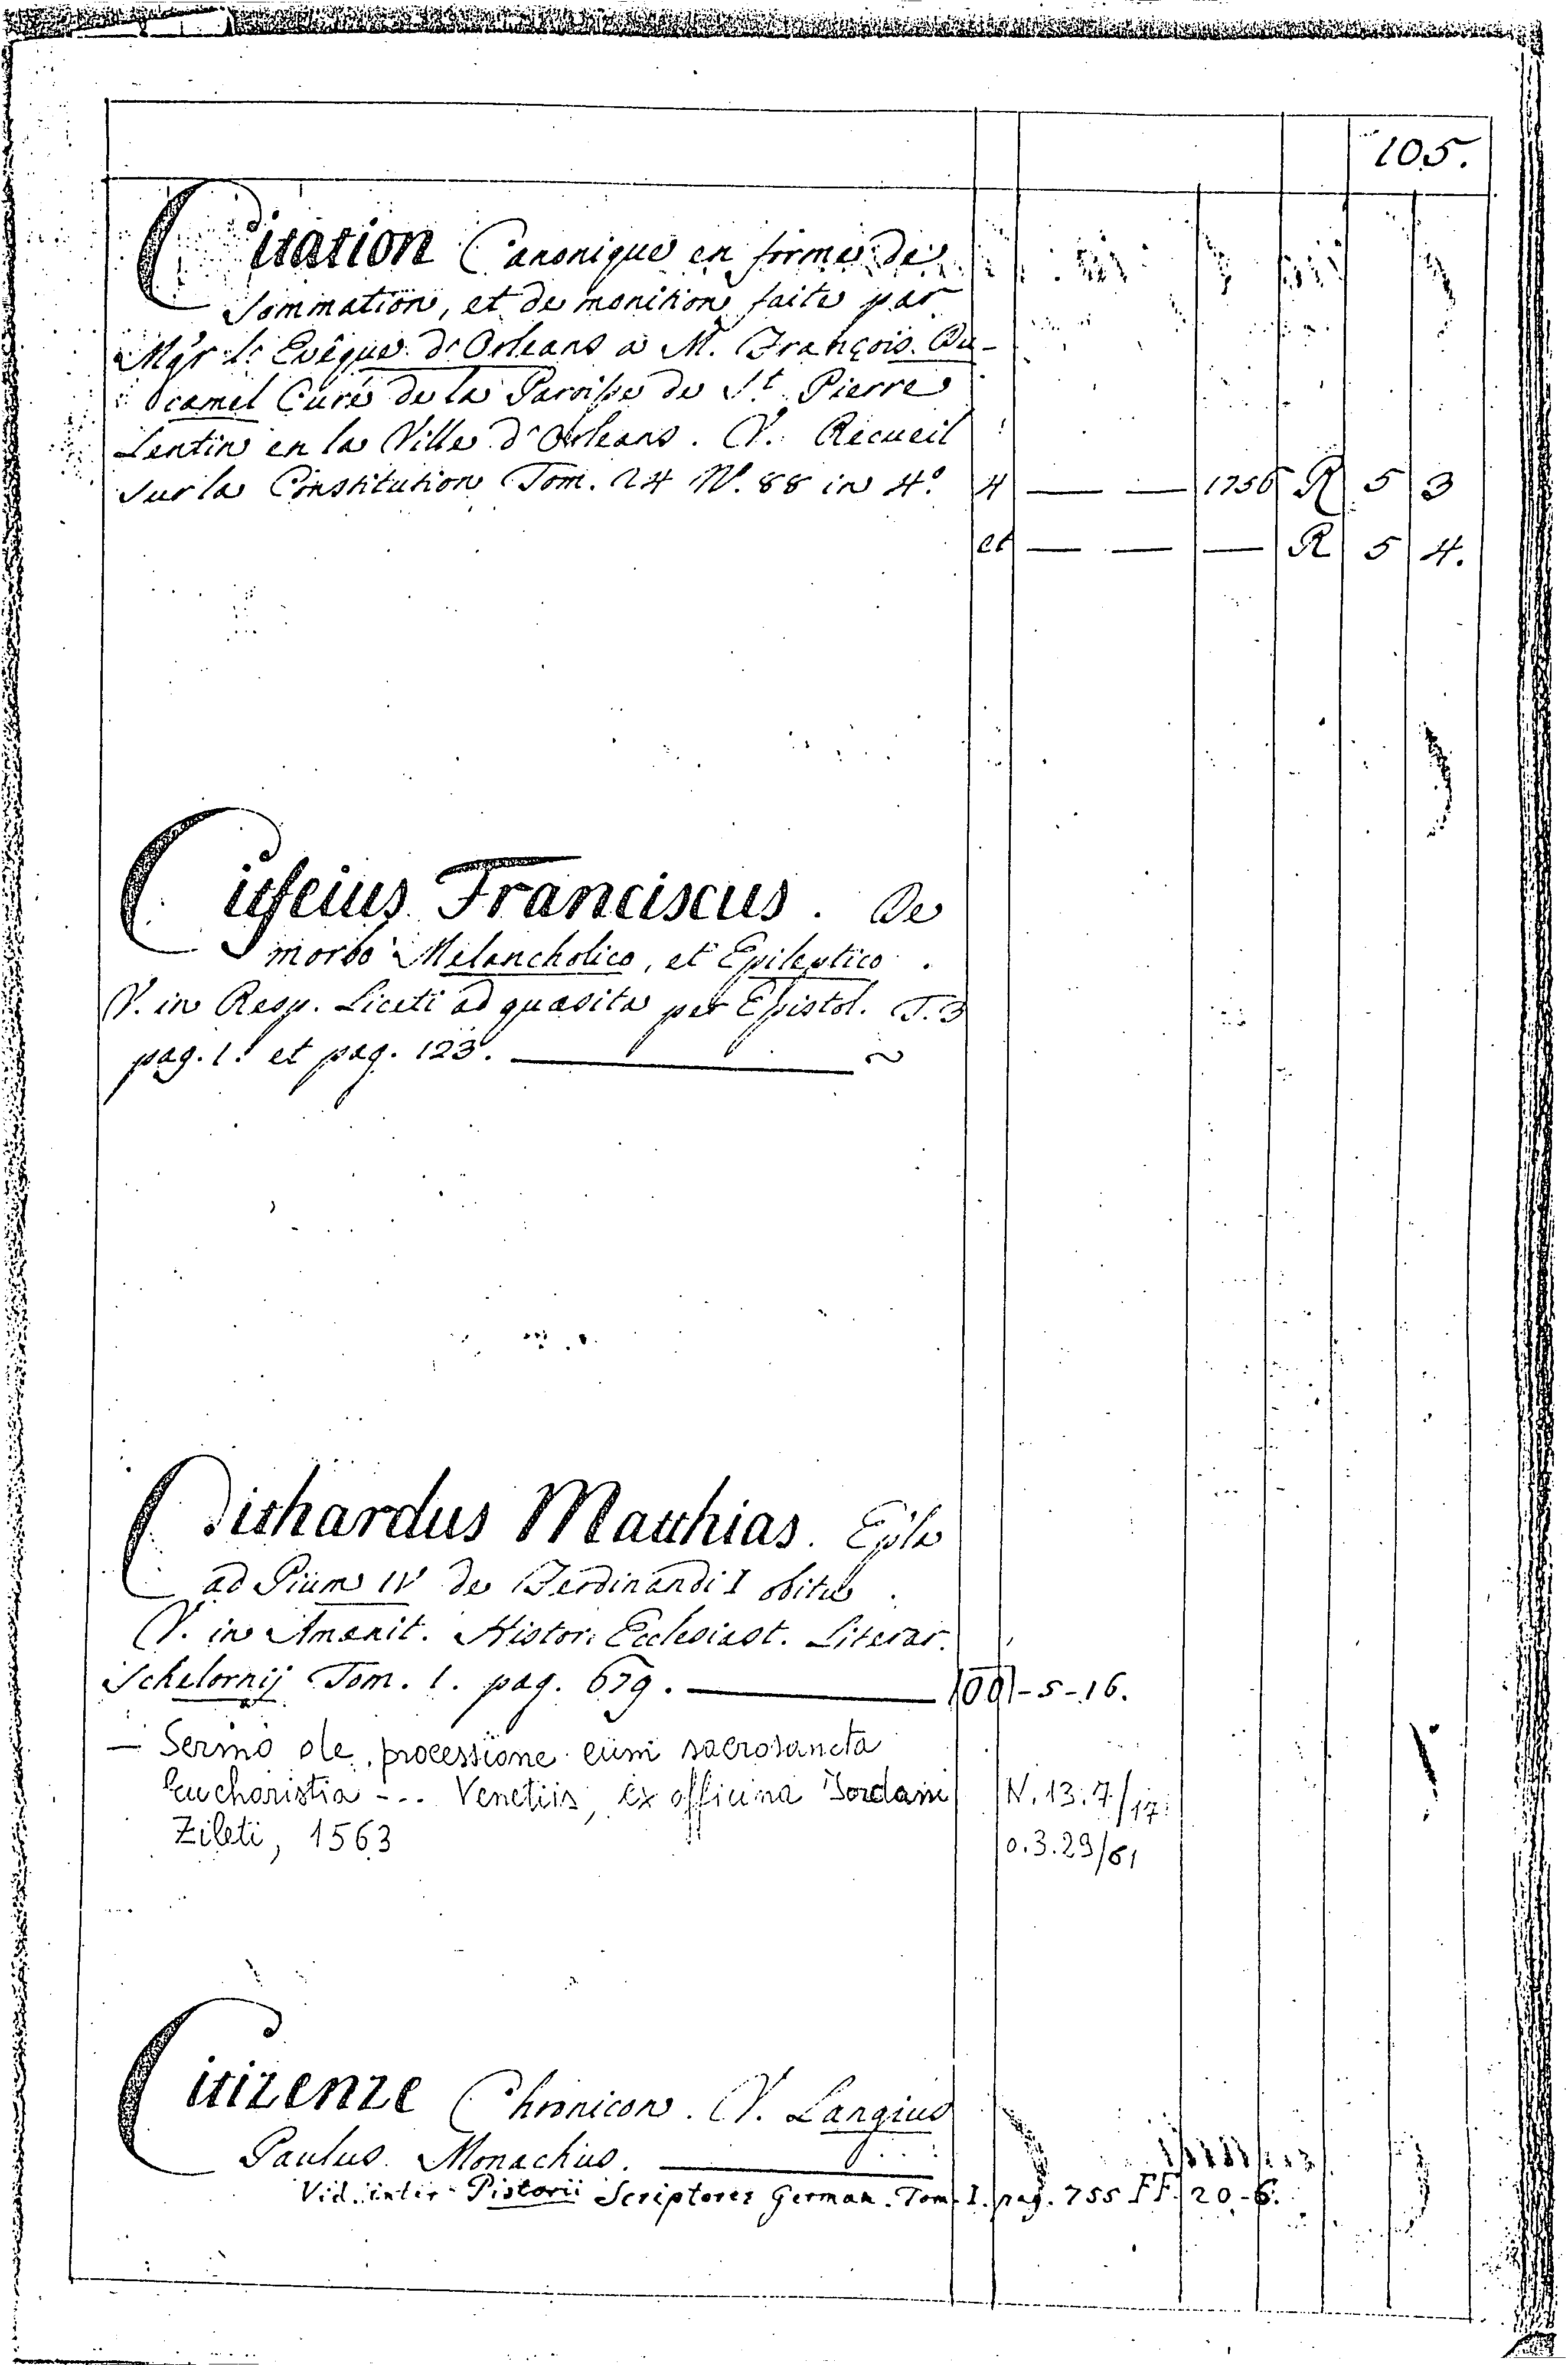 105.
Citation Canonique en forme de
Sommation, et de monition faite par
Mgr l'Evêque d'Orleans a M. François Du-
camel Curé de la Paroisse de St. Pierre
Lentin en la Ville d'Orleans. V. Recueil
sur la Constitution Tom. 24 N. 88 in 4º. 4 — — 1756 R 5 3
et — — — R 5 4.
Franciscus. De
morbo Melancholico, et Epileptico.
V. in Resp. Liceti ad quæsita per Epistol. T. 3
pag. 1. et pag. 123. — ~
Cithardus Matthias. Epla
ad Pium IV de Ferdinandi I obitu.
V. in Amænit. Histor. Ecclesiast. Literar.
Schelornij Tom. 1. pag. 679. — 00-5-16.
— Sermo de processione cum sacrosancta
Eucharistia --- Venetiis, ex officina Jordani N. 13.7/17
Zileti, 1563 o.3.29/61
Citizenze Chronicon. V. Langius
Paulus Monachus. —
Vid. inter Pistorii Scriptores German. Tom. I. pag. 755 FF. 20.-6.